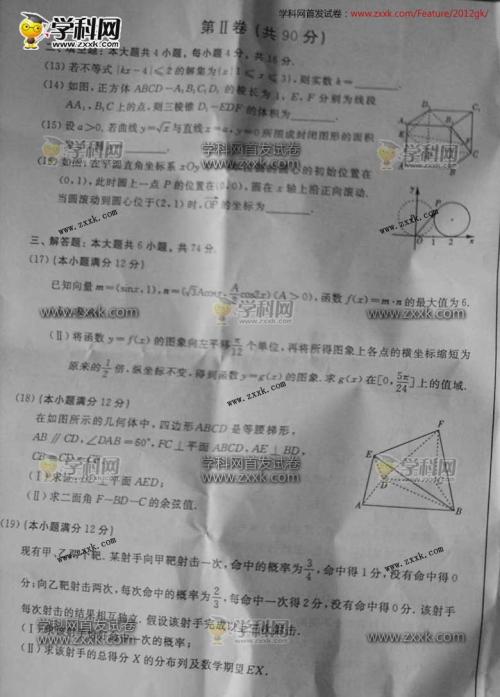 学科网首发试卷：www.zxxk.com/Feature/2012gk/
学科网
www.zxxk.com
第Ⅱ卷 (共 90 分)
二、填空题：本大题共 4 小题，每小题 4 分，共 16 分.
(13) 若不等式 |kx－4|≤2 的解集为{x|1≤x≤3}，则实数 k＝
(14) 如图，正方体 ABCD－A₁B₁C₁D₁ 的棱长为 1，E，F 分别为线段
AA₁，B₁C 上的点，则三棱锥 D₁－EDF 的体积为
(15) 设 a＞0. 若曲线 y＝√x 与直线 x＝a，y＝0 所围成封闭图形的面积
(16) 如图，在平面直角坐标系 xOy 的初始位置在
(0，1)，此时圆上一点 P 的位置在(0，0)，圆在 x 轴上沿正向滚动.
当圆滚动到圆心位于(2，1) 时，OP 的坐标为
三、解答题：本大题共 6 小题，共 74 分.
(17) (本小题满分 12 分)
已知向量 m＝(sinx，1)，n＝(√3Acosx，A/2 cos2x) (A＞0)，函数 f(x)＝m·n 的最大值为 6.
(Ⅱ) 将函数 y＝f(x) 的图象向左平移 π/12 个单位，再将所得图象上各点的横坐标缩短为
原来的 1/2 倍，纵坐标不变，得到函数 y＝g(x) 的图象. 求 g(x) 在[0，5π/24]上的值域.
(18) (本小题满分 12 分)
在如图所示的几何体中，四边形 ABCD 是等腰梯形，
AB∥CD，∠DAB＝60°，FC⊥平面 ABCD，AE⊥BD，
CB＝CD＝CF.
(Ⅰ) 求证：BD⊥平面 AED；
(Ⅱ) 求二面角 F－BD－C 的余弦值.
(19) (本小题满分 12 分)
现有甲、乙两个靶. 某射手向甲靶射击一次，命中的概率为 3/4，命中得 1 分，没有命中得 0
分；向乙靶射击两次，每次命中的概率为 2/3，每命中一次得 2 分，没有命中得 0 分. 该射手
每次射击的结果相互独立. 假设该射手完成以上三次射击.
(Ⅰ) 求该射手恰好命中一次的概率；
(Ⅱ) 求该射手的总得分 X 的分布列及数学期望 EX.